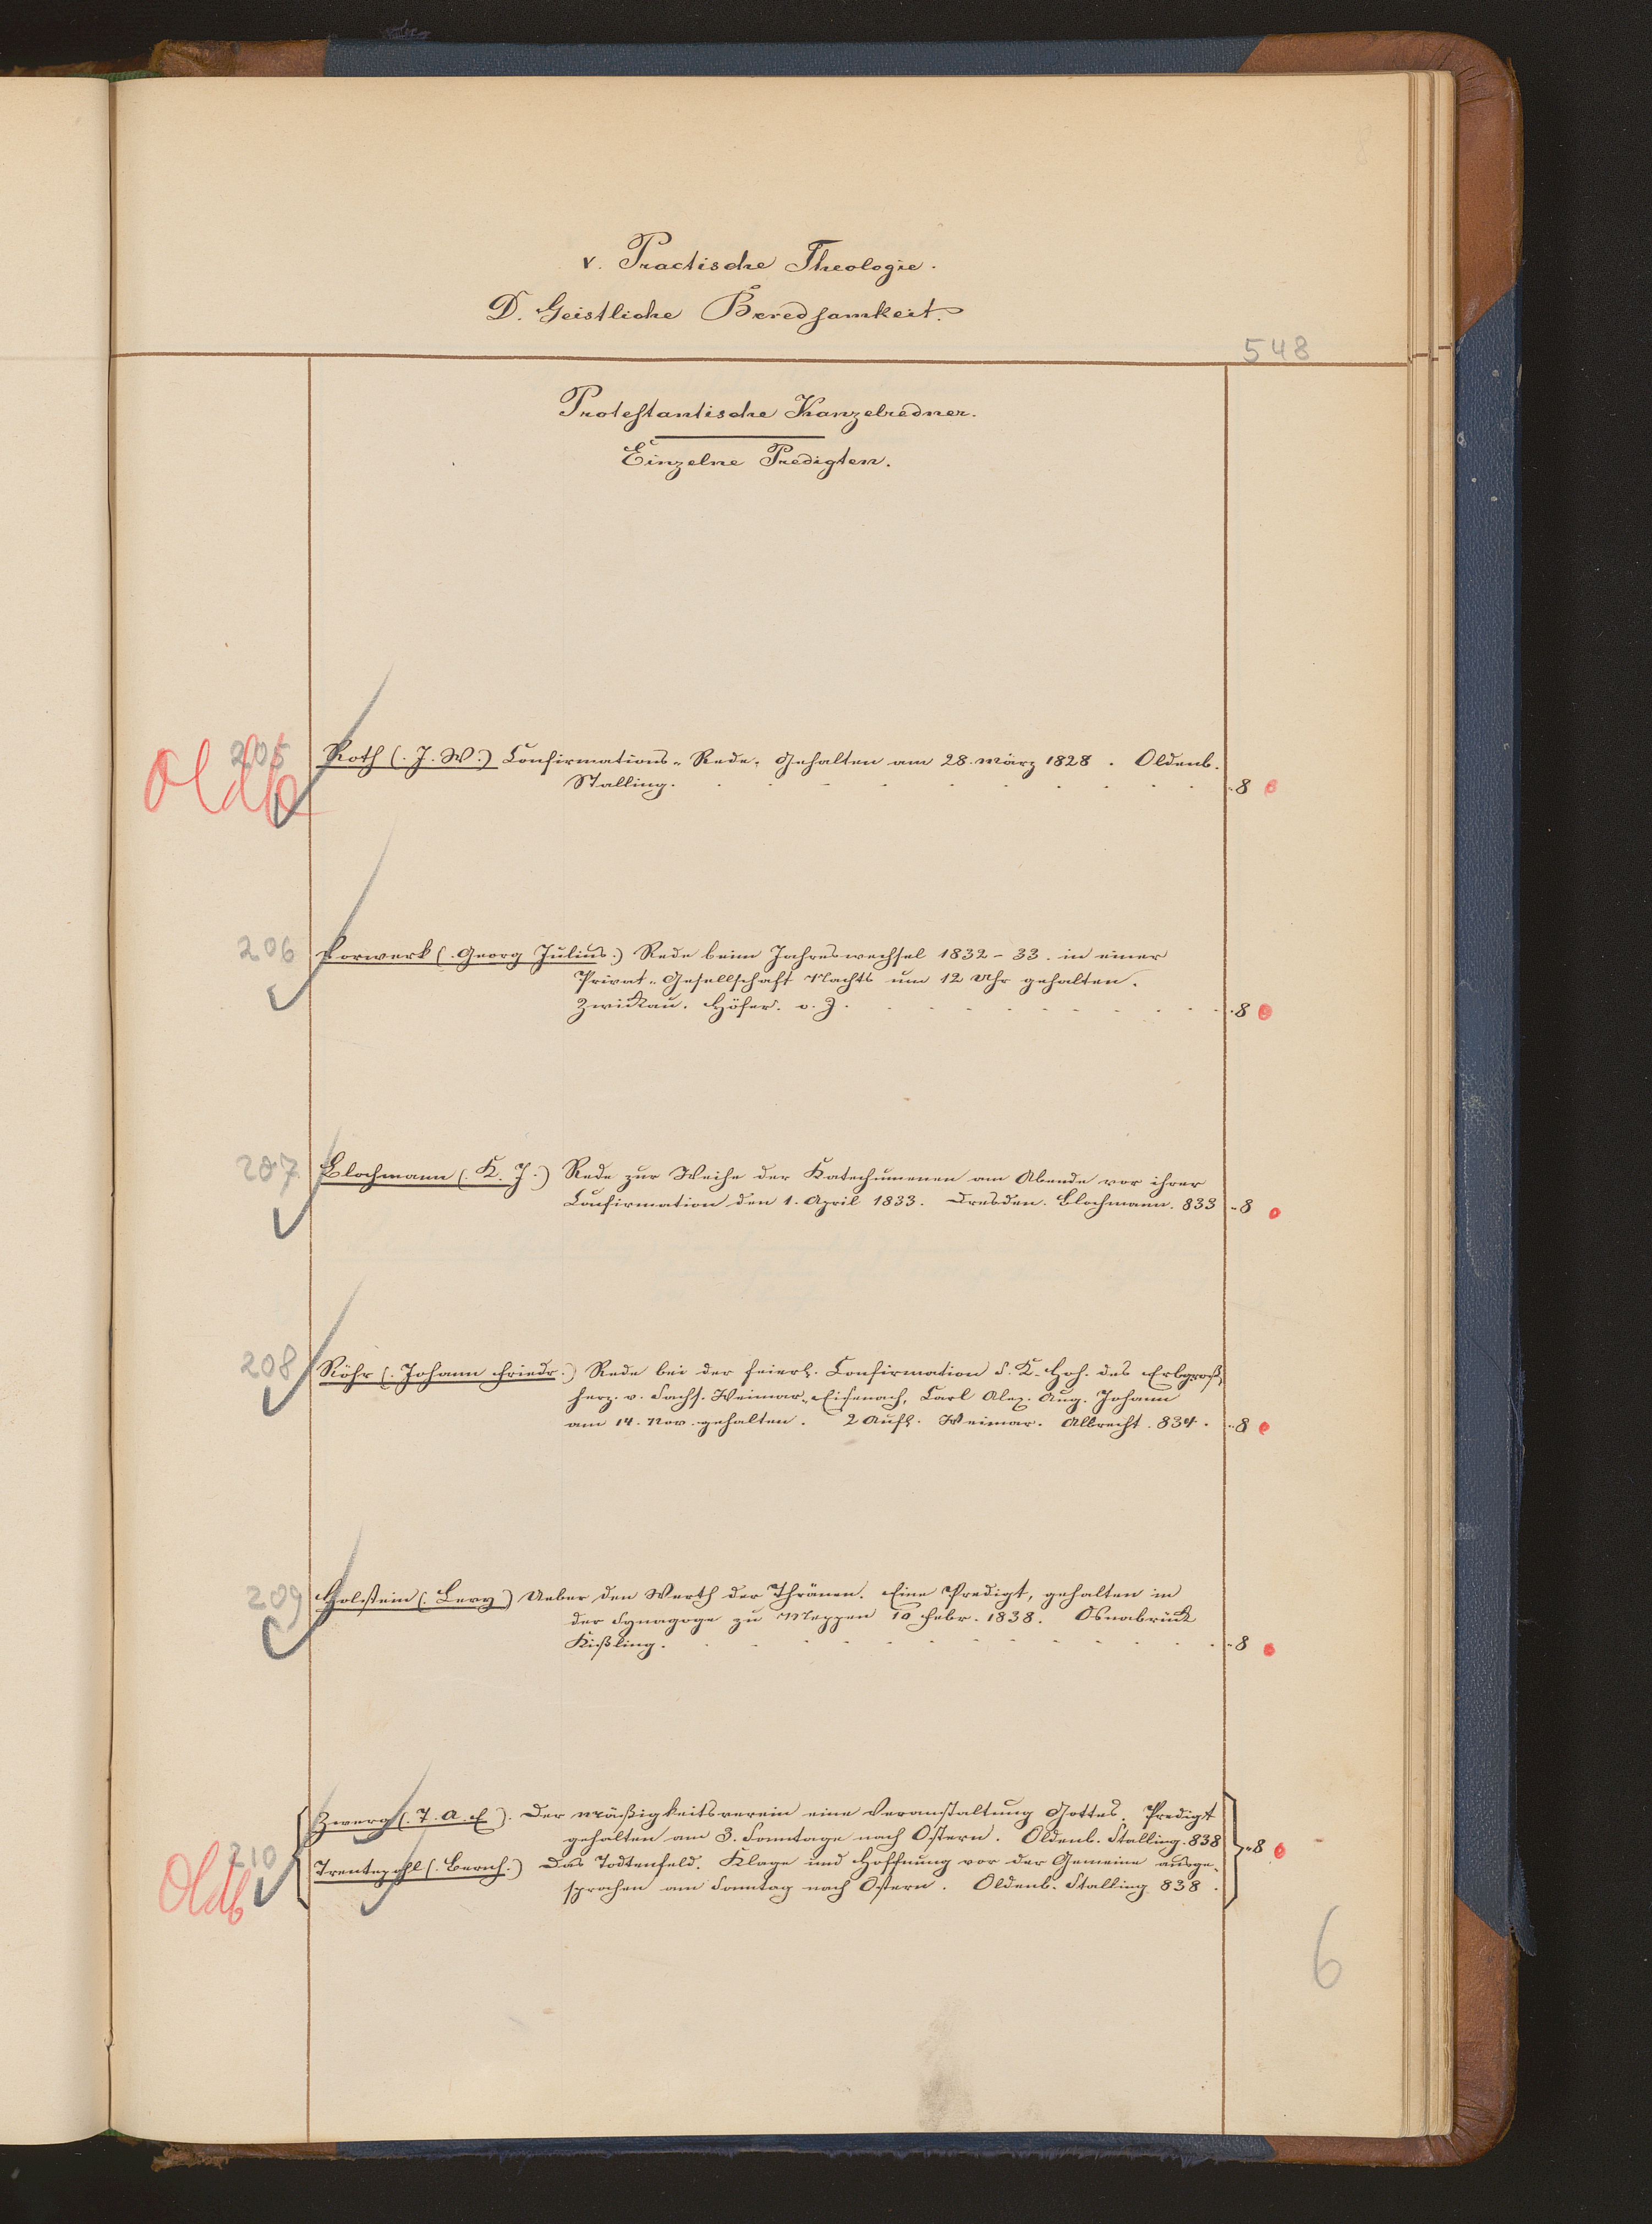 V. Practische Theologie.
D. Geistliche Beredsamkeit.
548
Protestantische Kanzelredner.
Einzelne Predigten.
Oldb
205
Roth (. J. W.) Confirmations-Rede, Gehalten am 28. März 1828. Oldenb.
Stalling. 8
206
Vorwerk (. Georg Julius.) Rede beim Jahreswechsel 1832-33. in einer
Privat-Gesellschaft Nachts um 12 Uhr gehalten.
Zwickau. Höfer. o. J. 8
207
Blochmann (. K. J.) Rede zur Weihe der Katechumenen am Abende vor ihrer
Confirmation den 1. April 1833. Dresden. Blochmann. 833 8
208
Röhr (. Johann Friedr.) Rede bei der feierl. Confirmation S. K. Hoh. des Erbgroß-
herz. v. Sachs. Weimar-Eisenach, Carl Alex. Aug. Johann
am 14. Nov. gehalten. 2 Aufl. Weimar. Albrecht. 834. 8
209
Holstein (. Levy) Ueber den Werth der Thränen. Eine Predigt, gehalten in
der Synagoge zu Meppen 10 Febr. 1838. Osnabrück
Kißling. 8
Zwerg (. T. A. E.). Der Mäßigkeitsverein eine Veranstaltung Gottes. Predigt
gehalten am 3. Sonntage nach Ostern. Oldenb. Stalling. 838
210
Oldb
8
Trentepohl (. Bernh.) Das Todtenfeld. Klage und Hoffnung vor der Gemeine ausge-
sprochen am Sonntag nach Ostern. Oldenb. Stalling 838.
6